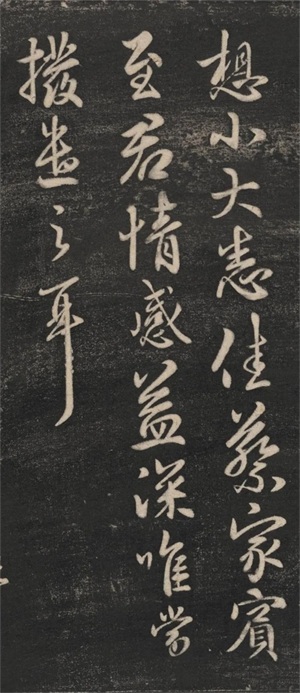 想小大悉佳蔡家賓
至君情感益深唯當
撥遣之耳